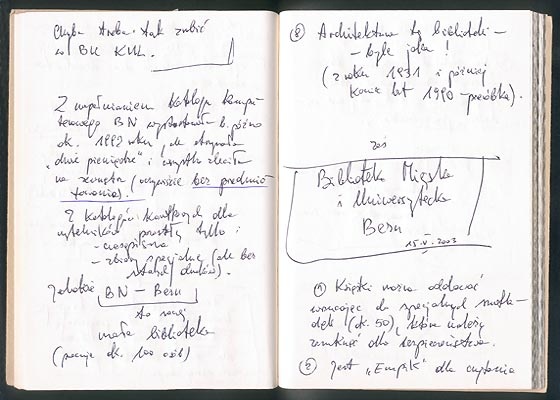 Chyba trzeba tak zrobić
w BU KUL.
Z wypełnianiem katalogu kompu-
terowego BN wystartowała b. późno
ok. 1992 roku, ale otrzymała
"duże pieniądze" i wszystko zleciła
na zewnątrz (oczywiście bez przedmio-
towania).
Z katalogów kartkowych dla
czytelników zostały tylko:
- czasopisma
- zbiory specjalne (ale bez
starych druków).
BN - Bern
to raczej
mała biblioteka
(pracuje ok. 100 osób)
⑧ Architektura tej biblioteki -
- byle jaka!
(z roku 1931 i później
koniec lat 1990 - przeróbka).
zaś
Biblioteka Miejska
i Uniwersytecka
Bern
15.V.2003
① Książki można oddawać
wrzucając do specjalnych szufla-
dek (ok. 50), które należy
zamknąć dla bezpieczeństwa.
② Jest "Empik" dla czytania